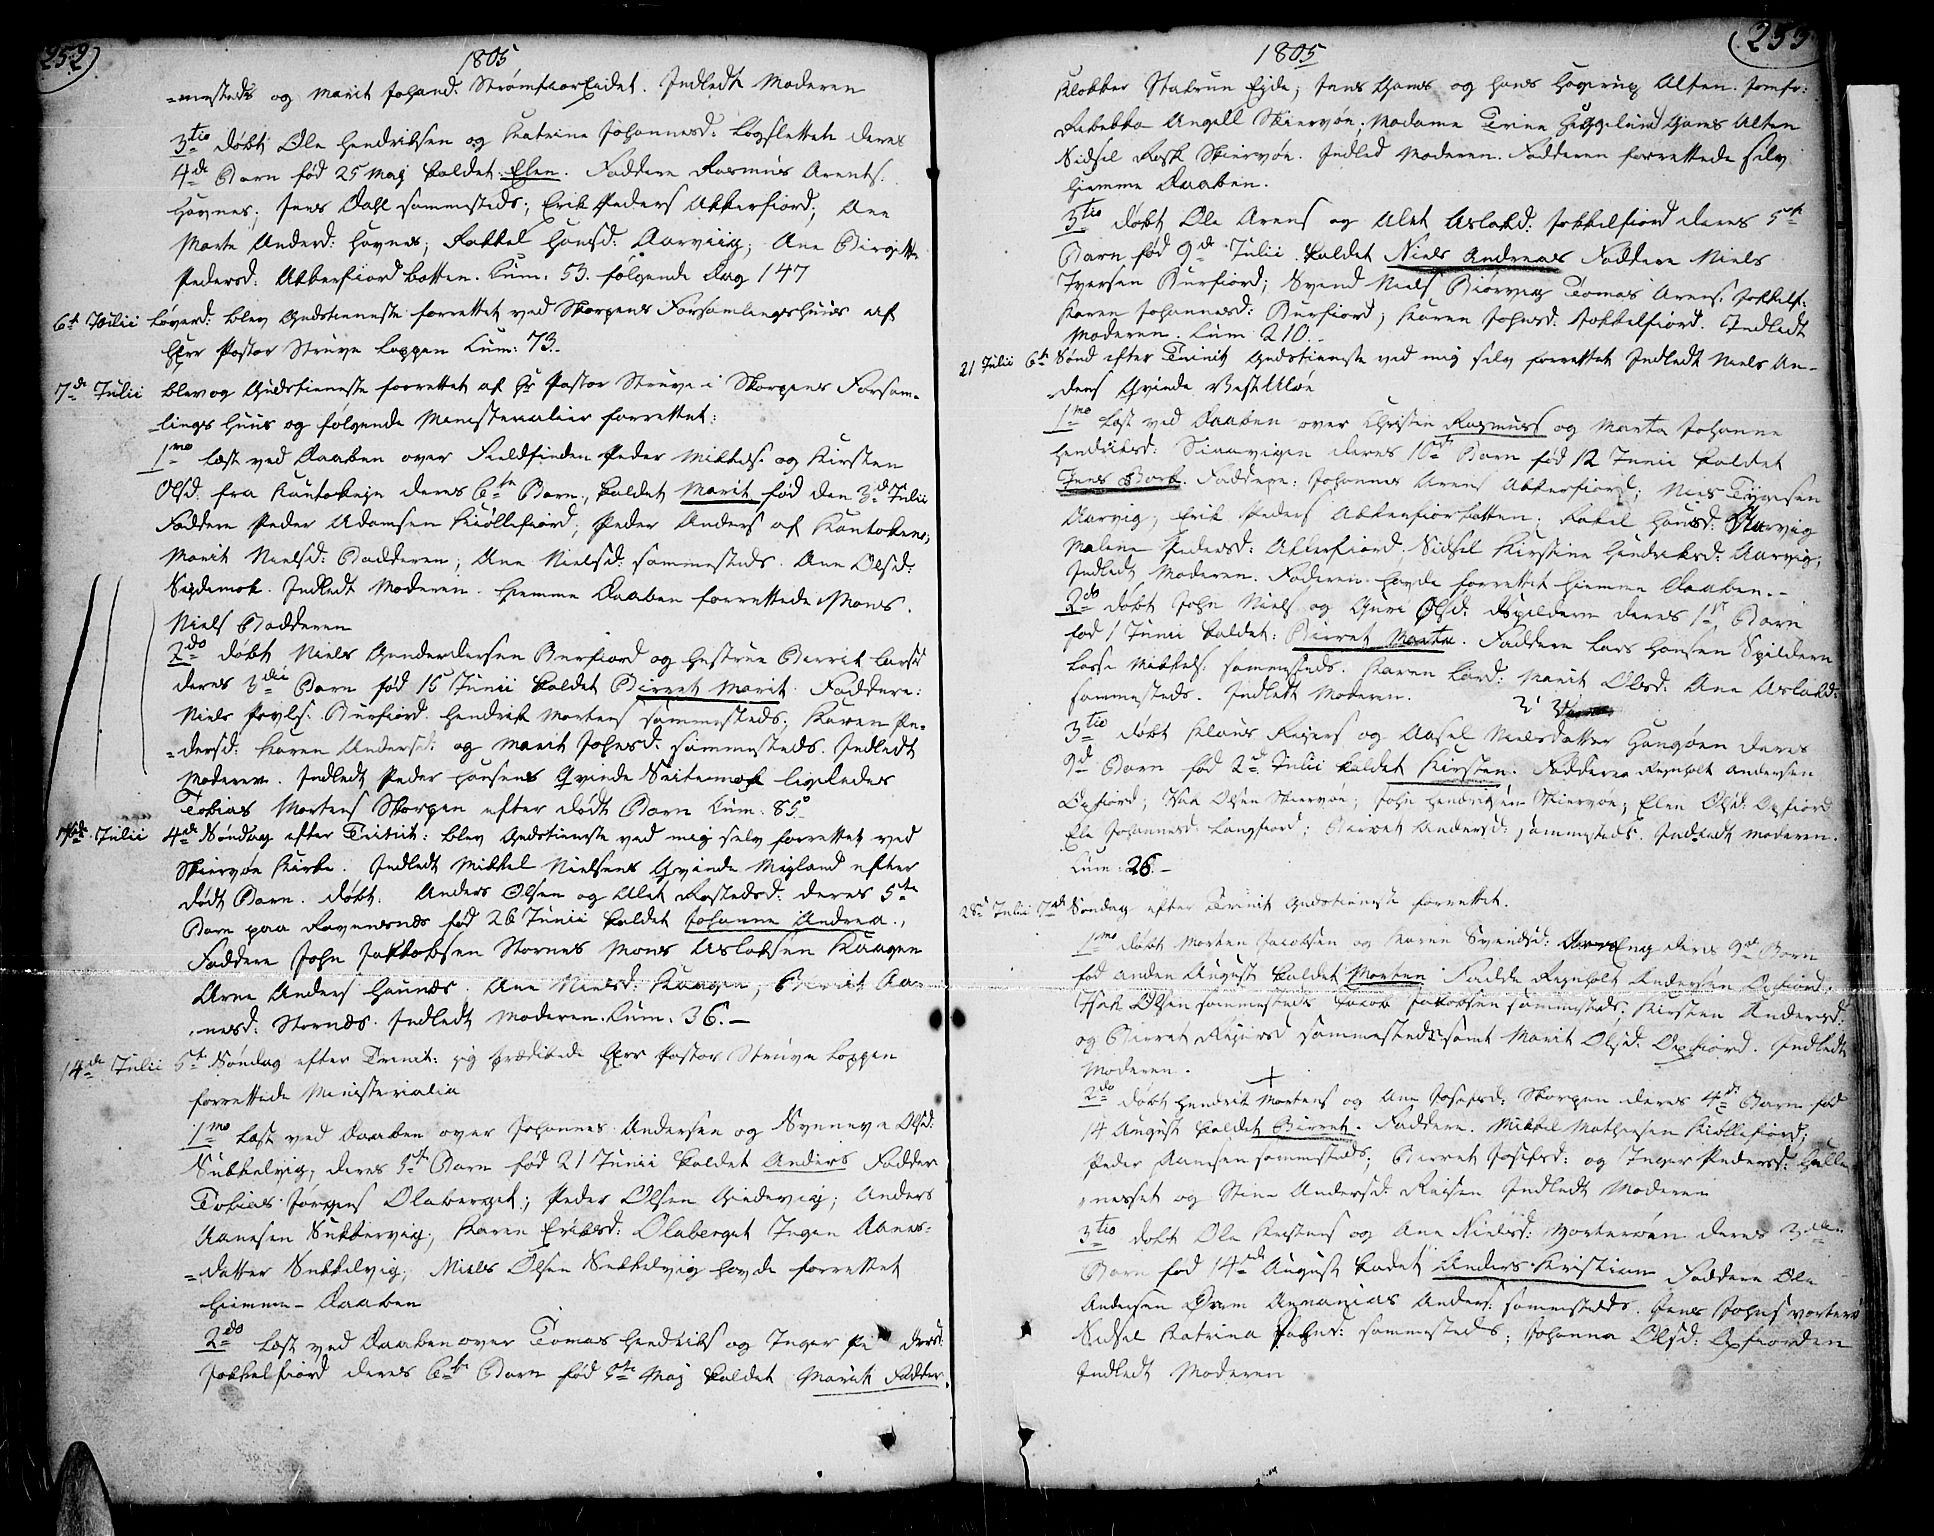 252)
1805
-mesteds og Marit Johansd. StrømfiorEidet. Indledt Moderen
3tio døbt Ole Hendrichsen og Katrine Johannesd: Løgsletten deres
4de Barn fød 25 Maj kaldet Elen. Faddere Rasmus Arents.
Havnes; Jens Dahl sammesteds; Erik Peders Alterfiord; Ane
Marte Andersd: Havnes; Rakkel Hansd: Aarviig; Ane Birgitte
Pedersd: Alterfiordbotten. Cum: 53. følgende Dag 147
6te Julii Løverd: blev Gudstieneste forrettet ved Skorpens Forsamlingshuus af
Herr Pastor Struve Loppen Cum: 73.
7de Julii blev og Gudstieneste forrettet af Hr Pastor Struve i Skorpens Forsam-
-lings Huus og følgende Ministerialier forrettet:
1mo Læst ved Daaben over Fieldfinden Peder Mikkels. og Kirsten
Olsd. fra Kautokejn deres 6te Barn, kaldet Marit fød den 3d Julii
Faddere Peder Adamsen Kiøllefiord; Peder Anders af Kautoken;
Marit Nielsd: Badderen; Ane Nielsd: sammesteds. Ane Olsd:
Indledt Moderen. Hiemme Daaben forrettede Mons
Niels Badderen
2do døbt Niels Gunderdersen Burfiord og Hustrue Berrit Larsd
deres 3die Barn fød 15 Junii kaldet Birret Marit. Faddere:
Niels Povls. Burfiord. Hendrik Mortens sammesteds; Karen Pe-
-dersd: Karen Andersd: og Marit Johnsd. sammesteds. Indledt
Moderen. Indledt Peder Hansens Qvinde ligeledes
Tobias Mortens Skorpen efter dødt Barn Cum: 85.
Julii 4de Søndag efter Trinit: blev Gudstieneste ved mig selv forrettet ved
Skiervøe Kirke. Indledt Mikkel Nielsens Qvinde Meiland efter
dødt Barn. døbt. Anders Olsen og Alet deres 5te
Barn paa Ravensnæs fød 26 Junii kaldet Johanne Andrea.
Faddere John Jakkobsen Stornes Mons Aslaksen Kaagen
Arne Anders Haunæs. Ane Nielsd: Kaagen, Berrit Aa-
-nesd: Stornæs. Indledt Moderen. Cum: 36.-
14de Julii 5te Søndag efter Trinit: prædikede Herr Pastor Struve Loppen
forrettede Ministerialia
1mo Læst ved Daaben over Johannes Andersen og Synneve Olsd:
Sukkelvig, deres 5te Barn fød 21 Junii kaldet Anders Fadder
Tobias Jørgens Olaberget; Peder Olsen Giedevig; Anders
Aanesen Sukkervig; Karen Eriksd: Olaberget Inger Aanes-
-datter Sukkelvig; Niels Olsen Sukkelvig havde forrettet
Hiemme-Daaben
2do Læst ved Daaben over Tomas Hendriks og Inger Pe dersd:
Jokkelfiord deres 6te Barn fød 5te Maj kaldet Marit Fadder.
253
1805
Klokker Stabrun Eide; Jens Gams og Hans Hagerup Alten. Jomfr:
Rebekka Angell Skiervøe; Madame Trine Heggelund Gams Alten
Sidsel Rask Skiervøe. Indled Moderen. Fadderen forrettede selv
Hiemme Daaben.
3tio døbt Ole Arens og Alet Aslakd: Jokkelfiord deres 5te
Barn fød 9de Julii kaldet Niels Andreas Faddere Niels
Iversen Burfiord; Svend Niels Biørvig Tomas Arens. Jokkelf.
Karen Johannesd: Burfiord; Karen Johnsd. Jokkelfiord. Indledt
Moderen. Cum 210.
21 Julii 6te Sønd efter Trinit Gudstieneste ved mig selv forrettet Indledt Niels An-
-ders Qvinde
1mo Læst ved Daaben over Christen Rasmuss og Marta Johanne
Hendriksd: deres 10de Barn fød 12 Junii kaldet
Jens Bark. Faddere: Johannes Arens Alterfiord; Niels
Aarvig; Erik Peders Alterfiorbotten; Rakel Hansd: Aarvig
Malene Pedersd: Alterfiord. Sidsel Kirstine Hendriksd: Aarvig;
Indledt Moderen. Faderen havde forrettet Hiemme Daaben.-
2do døbt John Niels og Guri Olsd: Spildern deres 1st Barn
fød 1 Junii kaldet: Birret Marta. Faddere Lars Hansen Spildern
Lasse Mikkels: sammesteds. Karen Larsd: Marit Olsd: Ane Aslakd:
sammesteds. Indledt Moderen.
3tio døbt Klaus Reiers og Aasel Nielsdatter Haugøen deres
9de Barn fød 2d Julii kaldet Kirsten. Faddere Reinholt Andersen
Oxfiord; Isak Olsen Skiervøe; John Hendriksen Skiervøe; Elen Olsd: Oxfiord
Ele Johannesd: Langfiord; Birret Andersd: sammesteds. Indledt Moderen.
Cum: 26.-
28d Julii 7de Søndag efter Trinit Gudstieneste forrettet.
1mo døbt Morten Jacobsen og Karen Svendsd: deres 9de Barn
fød anden August kaldet Morten Fadde Reinholt Andersen Oxfiord.
Isak Olsen sammesteds Jakobsen sammesteds. Kirsten Andersd:
og Birret Reiersd sammesteds samt Marit Olsd: Oxfiord. Indledt
Moderen.
2do døbt Hendrik Mortens og Ane Josefsd: Skorpen deres 4de Barn fød
14 August kaldet Birret. Faddere. Mikkel Mathesen Kiøllefiord;
Peder Aamesen sammesteds; Birret Josefsd: og Inger Pedersd: Halle
-nesset og Stine Andersd. Reisen Indledt Moderen
3tio døbt Ole Kristens og Ane Nielsd: Vorterøen deres 3die
Barn fød 14de August kadet Anders Kristian Faddere Ole
Andersen Ananias Anders: sammesteds. Jens Johns Vorterø
Sidsel Katrina Johnsd: sammesteds; Johanna Olsd: Oxfiorden
Indledt Moderen